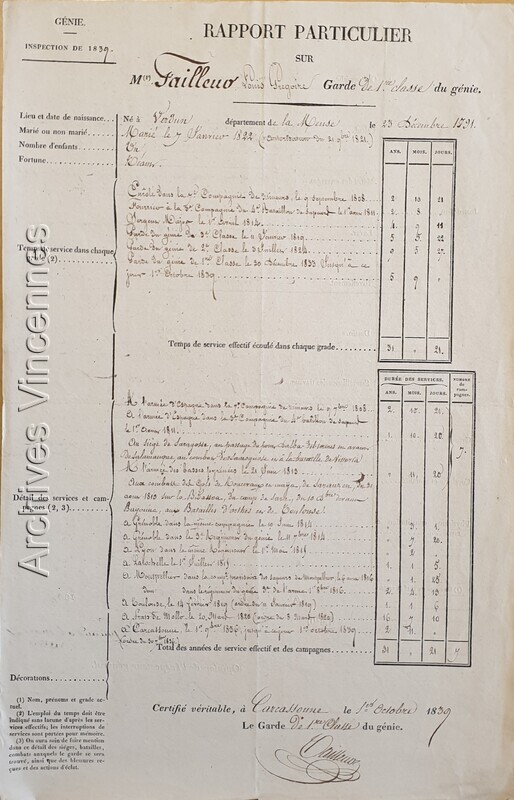 GÉNIE.
INSPECTION DE 1839.
RAPPORT PARTICULIER
SUR
Mr Tailleur Louis Grégoire Garde de 1re classe du génie.
Lieu et date de naissance... Né à Verdun département de la Meuse le 23 Décembre 1791.
Marié ou non marié... Marié le 7 Janvier 1822
Nombre d'enfants... Un
Fortune... Néant.
ANS. MOIS. JOURS.
Enrôlé dans la 7e Compagnie de mineurs, le 9 septembre 1808 2 10 21
Fourrier à la 3e Compagnie du 4e Bataillon de sapeurs le 1er août 1811 2 8
Sergent Major le 1er Avril 1814 4 9
Garde du génie de 3e Classe le 11 Janvier 1819 5 5 22
Temps de service dans chaque grade (2).
Garde du génie de 2e Classe le 3 Juillet 1824 9 5 27
Garde du Génie de 1re Classe le 20 Décembre 1833 Jusqu'à ce
jour 1er Octobre 1839 5 9
Temps de service effectif écoulé dans chaque grade... 31 21
DURÉE DES SERVICES. NOMBRE de campagnes.
ANS. MOIS. JOURS.
A l'armée d'Espagne dans la 7e Compagnie de mineurs le 9 7bre 1808 2 10 21
A l'armée d'Espagne dans la 3e Compagnie du 4e bataillon de sapeurs
le 1er Août 1811 1 10 20
Au Siège de Saragosse, au passage du
de Salamanque, au combat et à la bataille de Vittoria 7
A l'armée des basses pyrénées le 21 Juin 1813 11 20
Détail des services et campagnes (2, 3).
août 1813 sur la Bidassoa, du camp de Sarre, du 10
Bayonne, aux Batailles d'Orthez et de Toulouse
à Grenoble dans la même compagnie le 11 Juin 1814 3 1
à Grenoble dans le 3e Régiment du génie le 11 7bre 1814 7 20
à Lyon dans le même Régiment le 1er Mai 1815 2
à Larochelle le 1er Juillet 1815 1 1 5
à Montpellier dans la comp. provisoire des sapeurs de Montpellier, le 6 août 1816 1 25
dans le régiment du génie 1er 8bre 1816 2 4 13
à Toulouse, le 14 février 1819 (ordre du 11 Janvier 1819) 1 1 6
à Prats de Mollo, le 20 Mars 1820 (ordre du 8 Mars 1820) 16 7 10
à Carcassonne, le 1er 9bre 1836, jusqu'à ce jour 1er octobre 1839 2 11
Total des années de service effectif et des campagnes... 31 21 7
Décorations...
(1) Nom, prénoms et grade actuel.
(2) L'emploi du temps doit être
indiqué sans lacune d'après les services
effectifs; les interruptions de
services sont portées pour mémoire.
(3) On aura soin de faire mention
dans ce détail des sièges, batailles,
combats auxquels le garde se sera
trouvé, ainsi que des blessures reçues
et des actions d'éclat.
Certifié véritable, à Carcassonne le 1er Octobre 1839
Le Garde de 1re Classe du génie.
Tailleur
Archives Vincennes